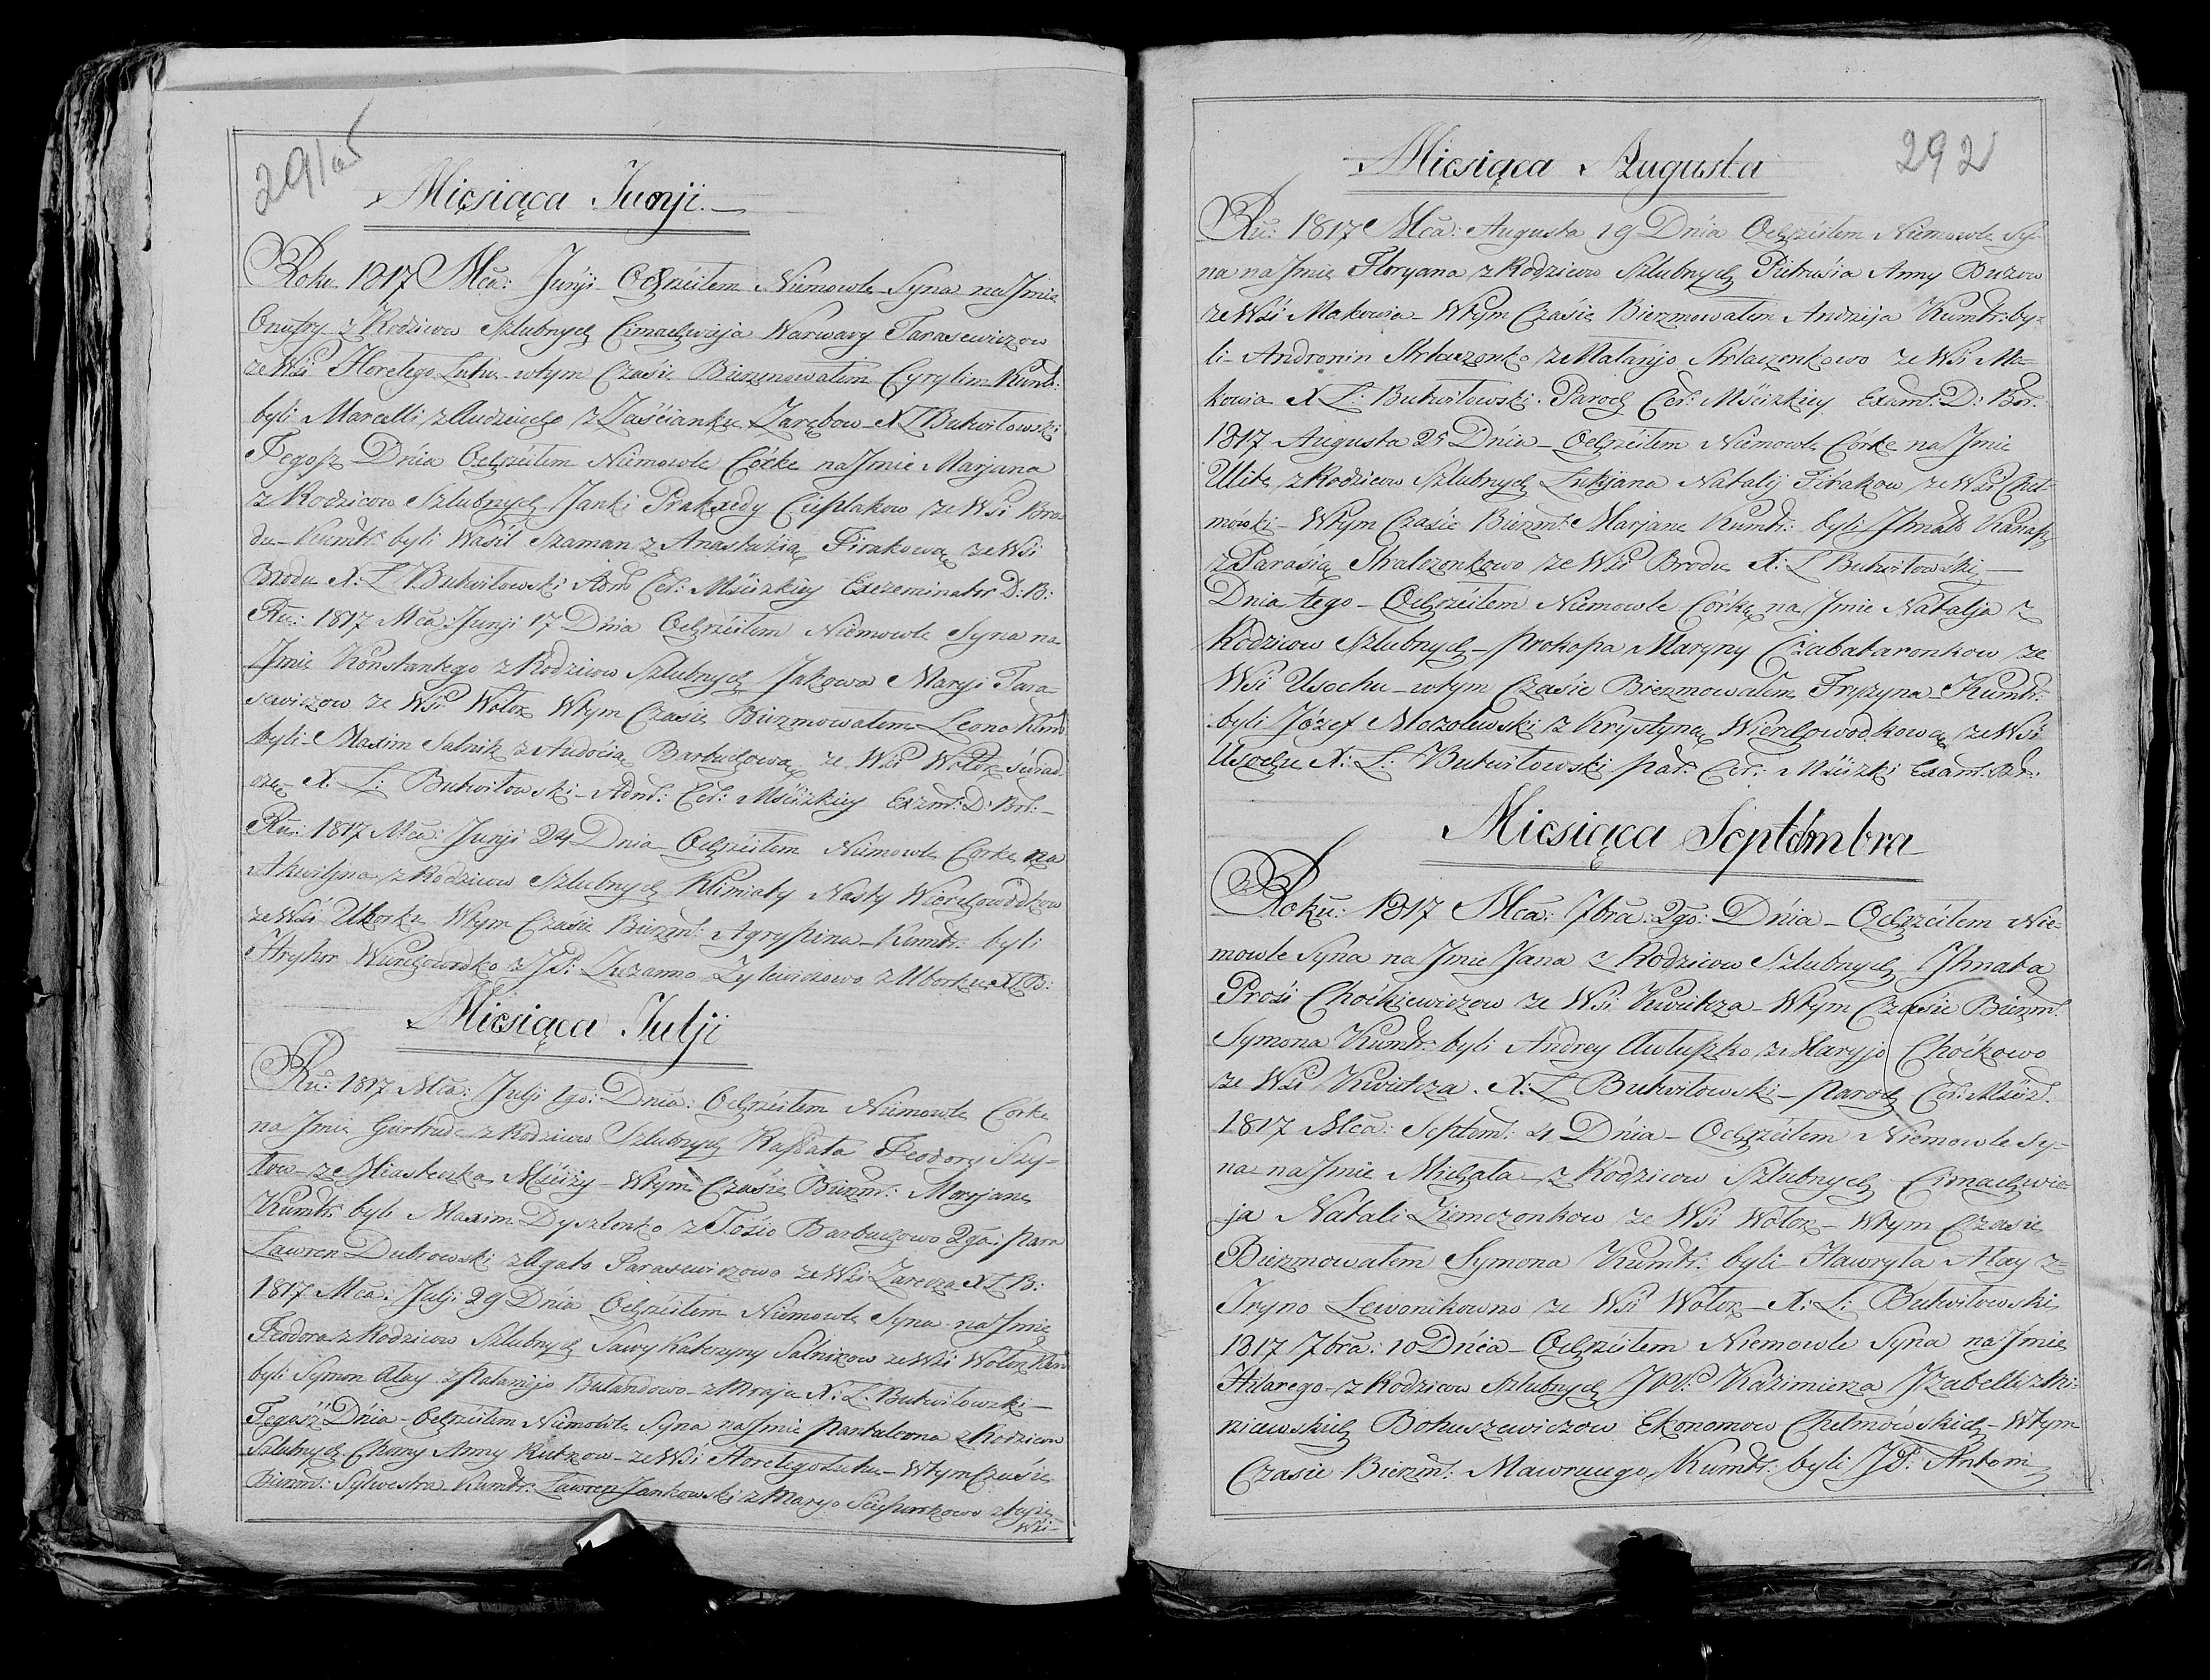 291 об
Miesiąca Junji
Roku 1817 Mca: Junji Ochrzciłem Niemowle Syna na Jmie
Onufry z Rodzicow Szlubnych Cimachwieja Warwary Tarasewiczow
ze Wsi Horelego Luhu wtym Czasie Bierzmowałem Cyrylim Kumt:
byli Marcelli z Zaścianku Zarębow X L Bukwiłowski
Tegosz Dnia Ochrzciłem Niemowle Córke na Jmie Marjana
z Rodzicow Szlubnych Janki Praksedy Cieplakow ze Wsi Bro-
du Kumtr: byli Wasil Szaman z Anastazią Firakową ze Wsi
Brodu X: L Bukwiłowski Adm Cer: Mściżkiey Exzeminator D: B:
Ru: 1817 Mca: Junji 17 Dnia Ochrzciłem Niemowle Syna na
Jmie Konstantego z Rodzicow Szlubnych Jakowa Maryi Tara-
sewiczow ze Wsi Wołok Wtym Czasie Bierzmowałem Leona Kumt
byli Maxim Salnik z Audocią Barbuchową ze Wsi Wołok świad-
czę X: L: Bukwiłowski Adm: Cer: Mściżkiey Exzm: D: Br:
Ru: 1817 Mca: Junji 24 Dnia Ochrzciłem Niemowle Corke na
Akwiljna z Rodzicow Szlubnych Klimiaty Nasty Wierchowodkow
ze Wsi Uborki Wtym Czasie Bierzm: Agrypina Kumtr: byli
Hryhor Wierchowodko z JP: Zuzanno Zylewiczowo z Uborku X L B:
Miesiąca Julji
Ru: 1817 Mca: Julji 1go: Dnia: Ochrzciłem Niemowle Corke
na Jmie Giertrude z Rodzicow Szlubnych Feodory Szy-
łow ze Miasteczka Mściży Wtym Czasie Bierzm: Maryjane
Kumtr: byli Maxim Dyszlonko z Tosio Barbuchowo 2ga: para
Ławren Dubrowski z Agato Tarasewiczowo ze Wsi Zarecza X L B:
1817 Mca: Julji 29 Dnia Ochrzciłem Niemowle Syna na Jmie
Feodora z Rodzicow Szlubnych Sawy Katerzyny Salnikow ze Wsi Wołok Kum
byli Symon Alay z Bałandowo z Kraju X: L: Bukwiłowski
Tegosz Dnia Ochrzciłem Niemowle Syna na Jmie Pantaleona z Rodzicow
Szlubnych Chomy Anny Kutzow ze Wsi Horelego Łuhu Wtym Czasie
Bierzm: Sylwestra Kumtr: Ławren Jankowski z Maryo z tejże
Wsi
292
Miesiąca Augusta
Ru: 1817 Mca: Augusta 19 Dnia Ochrzciłem Niemowle Sy-
na na Jmie Floryana z Rodzicow Szlubnych Pietrusia Anny Buzow
ze Wsi Makowia Wtym Czasie Bierzmowałem Andrzija Kumtr: by-
li Andronin ze Wsi Ma-
kowia X L: Bukwiłowski Paroch Cer: Mściżkiey Examt: D: Bor:
1817 Augusta 25 Dnia Ochrzciłem Niemowle Córke na Jmie
Ulite z Rodzicow Szlubnych Łukijana Natalij Firakow ze Wsi Cheł-
mowki Wtym Czasie Bierzm: Marjane Kumtr: byli Jhnat Kanasz
z Parasią Strelczonkowo ze Wsi Brodu X: L Bukwiłowski
Dnia tego Ochrzciłem Niemowle Córkę na Jmie Natalja z
Rodzicow Szlubnych Prokopa Maryny Czabataronkow ze
Wsi Usochu wtym Czasie Bierzmowałem Kumtr:
byli Józef Mozolewski z Krystyną Wierchowodkową ze Wsi
Usochu X: L: Bukwiłowski Par: Cer: Mściżki Examt: Br:
Miesiąca Septembra
Roku: 1817 Mca: 7bra: 2go: Dnia Ochrzciłem Nie-
mowle Syna na Jmie Jana z Rodzicow Szlubnych Jhnata
Prosi Choćkiewiczow ze Wsi Kwiecza Wtym Czasie Bierzm:
Symona Kumtr: byli Andrey Aułuszko z Maryjo Choćkowo
ze Wsi Kwiecza X: L Bukwiłowski Paroch Cer: Mściz:
1817 Mca: Septem: 4 Dnia Ochrzciłem Niemowle Sy-
na na Jmie Michała z Rodzicow Szlubnych Cimachwie-
ja Natali Ziemczonkow ze Wsi Wołok Wtym Czasie
Bierzmowałem Symona Kumtr: byli Hawryła Alay z
Iryno Lewonikowno ze Wsi Wołok X: L: Bukwiłowski
1817 7bra: 10 Dnia Ochrzciłem Niemowle Syna na Jmie
Hilarego z Rodzicow Szlubnych JPP: Kazimierza Jzabelli z Ki-
niewskich Bohuszewiczow Ekonomow Chełmowskich Wtym
Czasie Bierzm: Mawrucego Kumtr: byli JP: Antoni